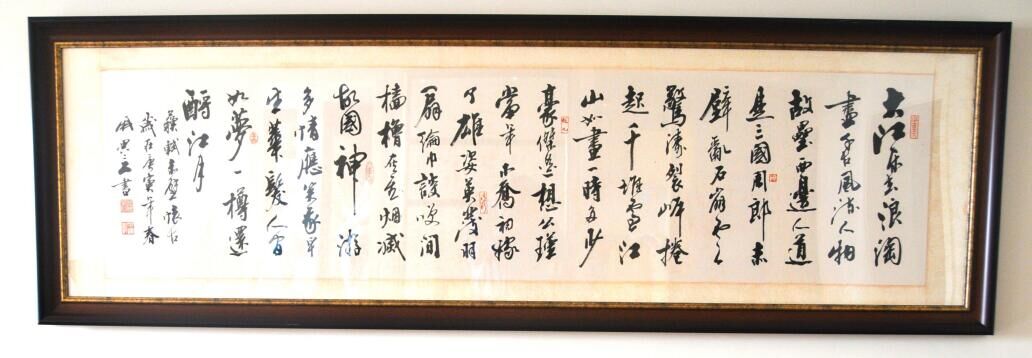 大江东去浪淘
盡千古風流人物
故壘西邊人道
是三國周郎赤
壁亂石崩雲
驚濤裂岸捲
起千堆雪江
山如畫一時多少
豪傑遥想公瑾
當年小喬初嫁
了雄姿英發羽
扇綸巾談笑间
檣櫓灰飞烟滅
故國神游
多情應笑我早
生華髮人间
如夢一樽還
酹江月
蘇軾赤壁懷古
歲在庚寅年春
書